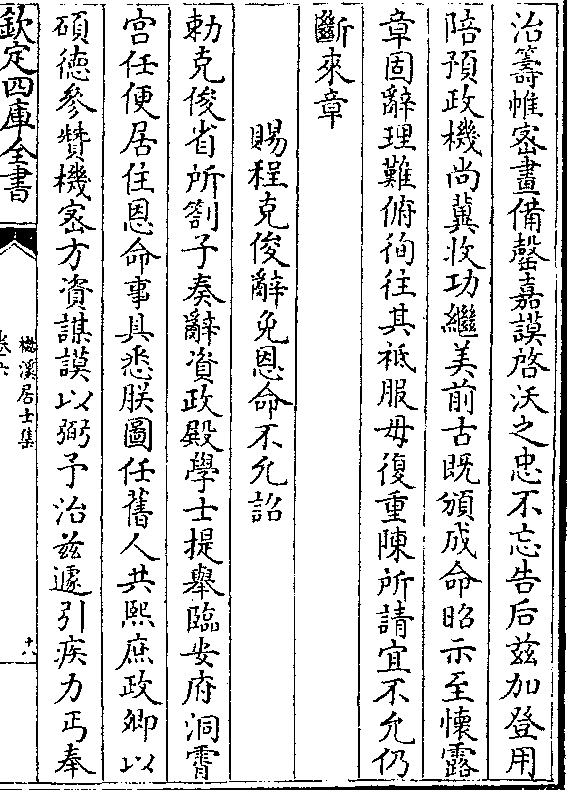 治籌帷密畫備罄嘉謨啓沃之忠不忘告后兹加登用
陪預政機尚冀收功繼美前古既頒成命昭示至懷露
章固辭理難俯徇往其祇服毋復重陳所請宜不允仍
斷來章
賜程克俊辭免恩命不允詔
勅克俊省所劄子奏辭資政殿學士提舉臨安府洞霄
宫任便居住恩命事具悉朕圖任舊人共熙庶政卿以
碩徳參贊機密方資謀謨以弼予治兹遽引疾力丐奉
欽定四庫全書
楳溪居士集
卷六
十八